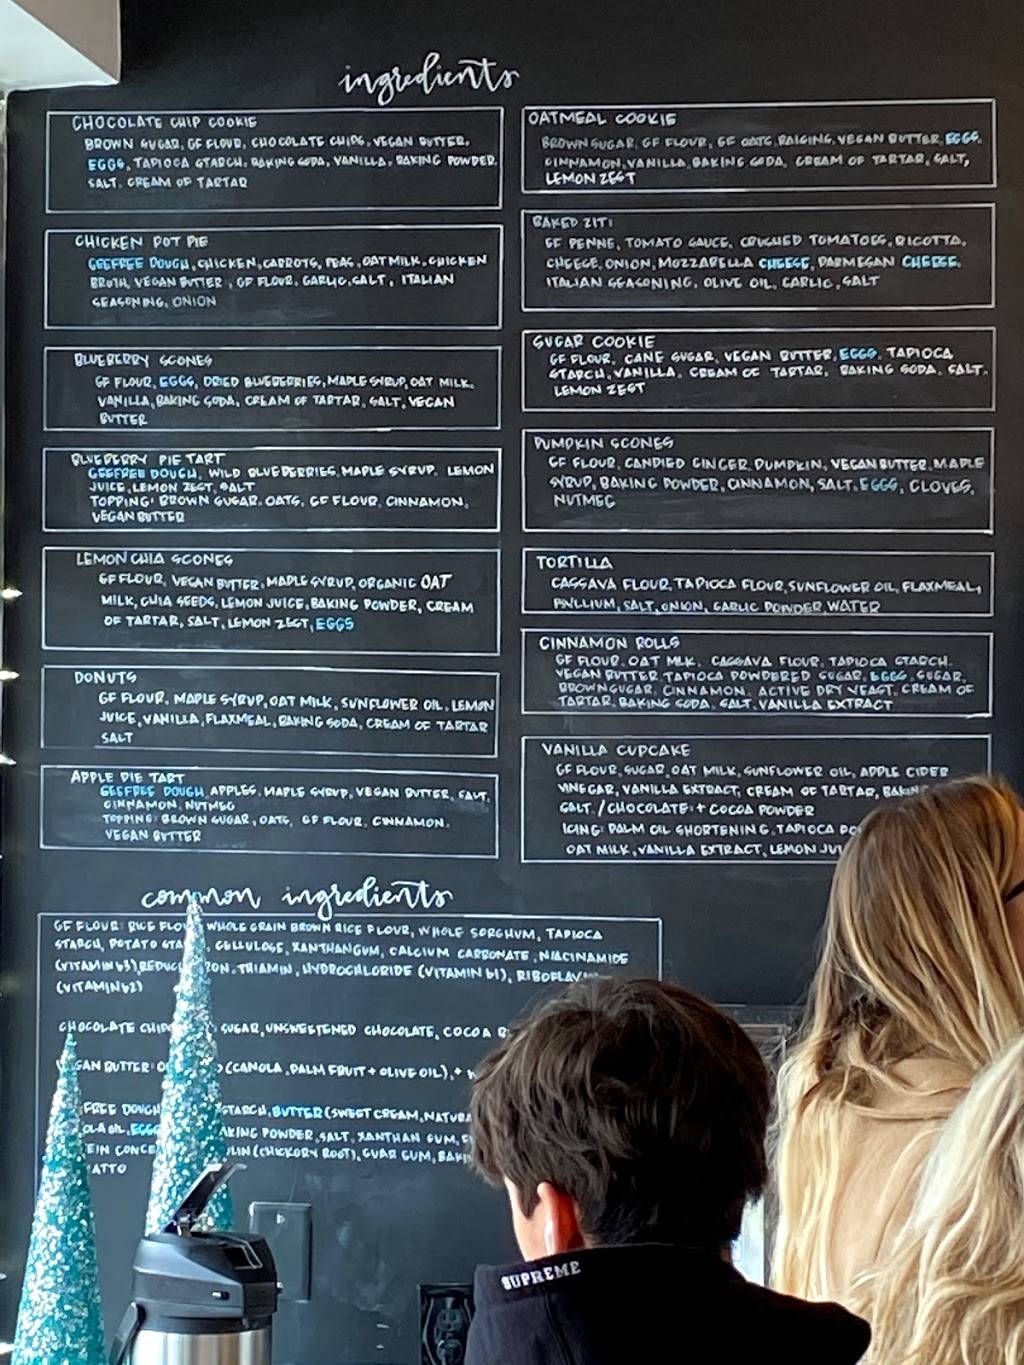 ingredients
CHOCOLATE CHIP COOKIE
BROWN SUGAR, GF FLOUR, CHOCOLATE CHIPS, VEGAN BUTTER,
EGGS, TAPIOCA STARCH, BAKING SODA, VANILLA, BAKING POWDER,
SALT, CREAM OF TARTAR
CHICKEN POT PIE
GEEFREE DOUGH, CHICKEN, CARROTS, PEAS, OAT MILK, CHICKEN
BROTH, VEGAN BUTTER, GF FLOUR, GARLIC, SALT, ITALIAN
SEASONING, ONION
BLUEBERRY SCONES
GF FLOUR, EGGS, DRIED BLUEBERRIES, MAPLE SYRUP, OAT MILK,
VANILLA, BAKING SODA, CREAM OF TARTAR, SALT, VEGAN
BUTTER
BLUEBERRY PIE TART
GEEFREE DOUGH, WILD BLUEBERRIES, MAPLE SYRUP, LEMON
JUICE, LEMON ZEST, SALT
TOPPING: BROWN SUGAR, OATS, GF FLOUR, CINNAMON,
VEGAN BUTTER
LEMON CHIA SCONES
GF FLOUR, VEGAN BUTTER, MAPLE SYRUP, ORGANIC OAT
MILK, CHIA SEEDS, LEMON JUICE, BAKING POWDER, CREAM
OF TARTAR, SALT, LEMON ZEST, EGGS
DONUTS
GF FLOUR, MAPLE SYRUP, OAT MILK, SUNFLOWER OIL, LEMON
JUICE, VANILLA, FLAXMEAL, BAKING SODA, CREAM OF TARTAR
SALT
APPLE PIE TART
GEEFREE DOUGH, APPLES, MAPLE SYRUP, VEGAN BUTTER, SALT,
CINNAMON, NUTMEG
TOPPING: BROWN SUGAR, OATS, GF FLOUR, CINNAMON,
VEGAN BUTTER
OATMEAL COOKIE
BROWN SUGAR, GF FLOUR, GF OATS, RAISINS, VEGAN BUTTER, EGGS,
CINNAMON, VANILLA, BAKING SODA, CREAM OF TARTAR, SALT,
LEMON ZEST
BAKED ZITI
GF PENNE, TOMATO SAUCE, CRUSHED TOMATOES, RICOTTA,
CHEESE, ONION, MOZZARELLA CHEESE, PARMEGAN CHEESE,
ITALIAN SEASONING, OLIVE OIL, GARLIC, SALT
SUGAR COOKIE
GF FLOUR, CANE SUGAR, VEGAN BUTTER, EGGS, TAPIOCA
STARCH, VANILLA, CREAM OF TARTAR, BAKING SODA, SALT,
LEMON ZEST
PUMPKIN SCONES
GF FLOUR, CANDIED GINGER, PUMPKIN, VEGAN BUTTER, MAPLE
SYRUP, BAKING POWDER, CINNAMON, SALT, EGGS, CLOVES,
NUTMEG
TORTILLA
CASSAVA FLOUR, TAPIOCA FLOUR, SUNFLOWER OIL, FLAXMEAL,
PSYLLIUM, SALT, ONION, GARLIC POWDER WATER
CINNAMON ROLLS
GF FLOUR, OAT MILK, CASSAVA FLOUR, TAPIOCA STARCH,
VEGAN BUTTER, TAPIOCA POWDERED SUGAR, EGGS, SUGAR,
BROWN SUGAR, CINNAMON, ACTIVE DRY YEAST, CREAM OF
TARTAR, BAKING SODA, SALT, VANILLA EXTRACT
VANILLA CUPCAKE
GF FLOUR, SUGAR, OAT MILK, SUNFLOWER OIL, APPLE CIDER
VINEGAR, VANILLA EXTRACT, CREAM OF TARTAR, BAKING
SALT. / CHOCOLATE: + COCOA POWDER
ICING: PALM OIL SHORTENING, TAPIOCA PO
OAT MILK, VANILLA EXTRACT, LEMON JUI
common ingredients
GF FLOUR: RICE FLOU WHOLE GRAIN BROWN RICE FLOUR, WHOLE SORGHUM, TAPIOCA
STARCH, POTATO STA CELLULOSE, XANTHAN GUM, CALCIUM CARBONATE, NIACINAMIDE
(VITAMIN b3), REDUC RON, THIAMIN, HYDROCHLORIDE (VITAMIN b1), RIBOFLAVIN
(VITAMIN b2)
CHOCOLATE CHIP SUGAR, UNSWEETENED CHOCOLATE, COCOA B
GAN BUTTER: O (CANOLA, PALM FRUIT + OLIVE OIL), +
FREE DOUGH STARCH, BUTTER (SWEET CREAM, NATURA
OLA OIL, EGG AKING POWDER, SALT, XANTHAN GUM,
EIN CONCE LIN (CHICKORY ROOT), GUAR GUM, BAKI
ATTO
SUPREME